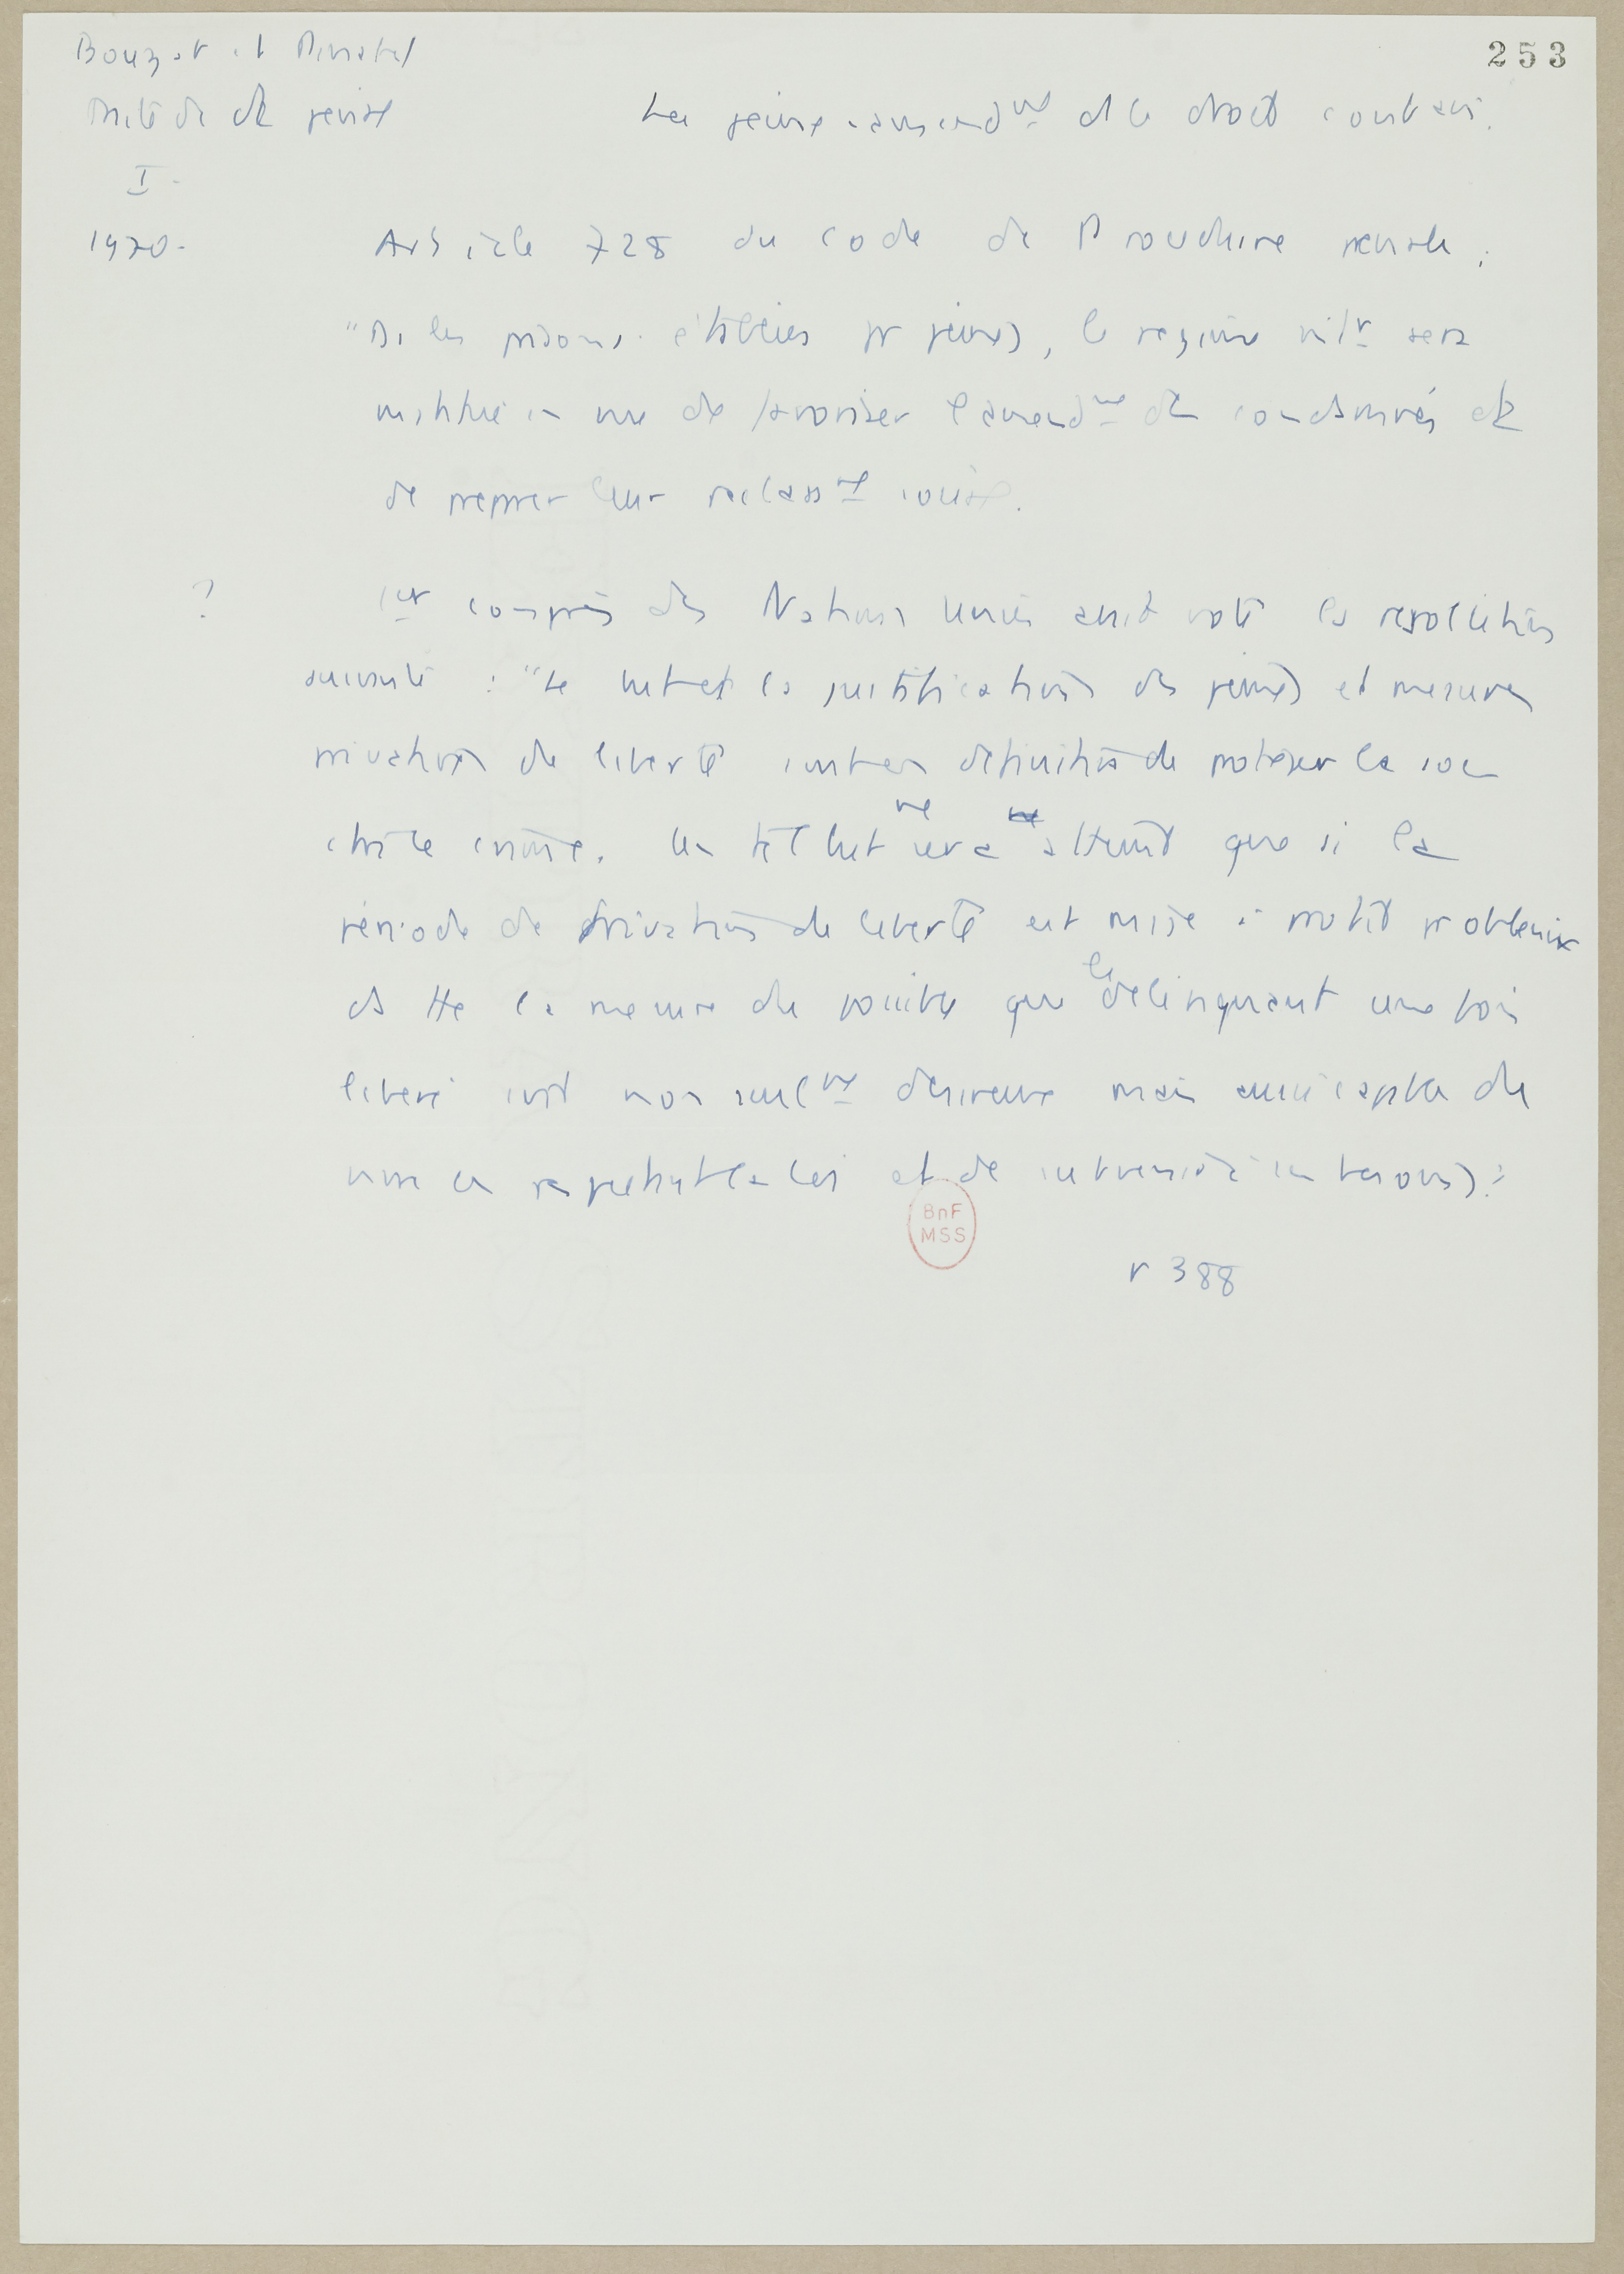 253
Bouzat et Pinatel
Traité de dt pénal
La peine-amendmt et le droit contemp.
I -
1970-
Article 728 du code de Procédure pénale.
"Ds les prisons établies pr peines, le régime sera
institué en vue de favoriser l'amendmt des condamnés et
de préparer leur reclassmt social.
?
1er congrès des Nations Unies avait voté la résolution
suivante : "Le but et la justification des peines et mesures
privatives de liberté sont en définitive de protéger la soc
ctre le crime. Un tel but ne sera atteint que si la
période de privation de liberté est mise à profit pr obtenir
ds tte la mesure du possible que le délinquant une fois
libéré soit non seulmt désireux mais aussi capable de
vivre en respectant la loi et de subvenir à ses besoins".
BnF
MSS
p 388